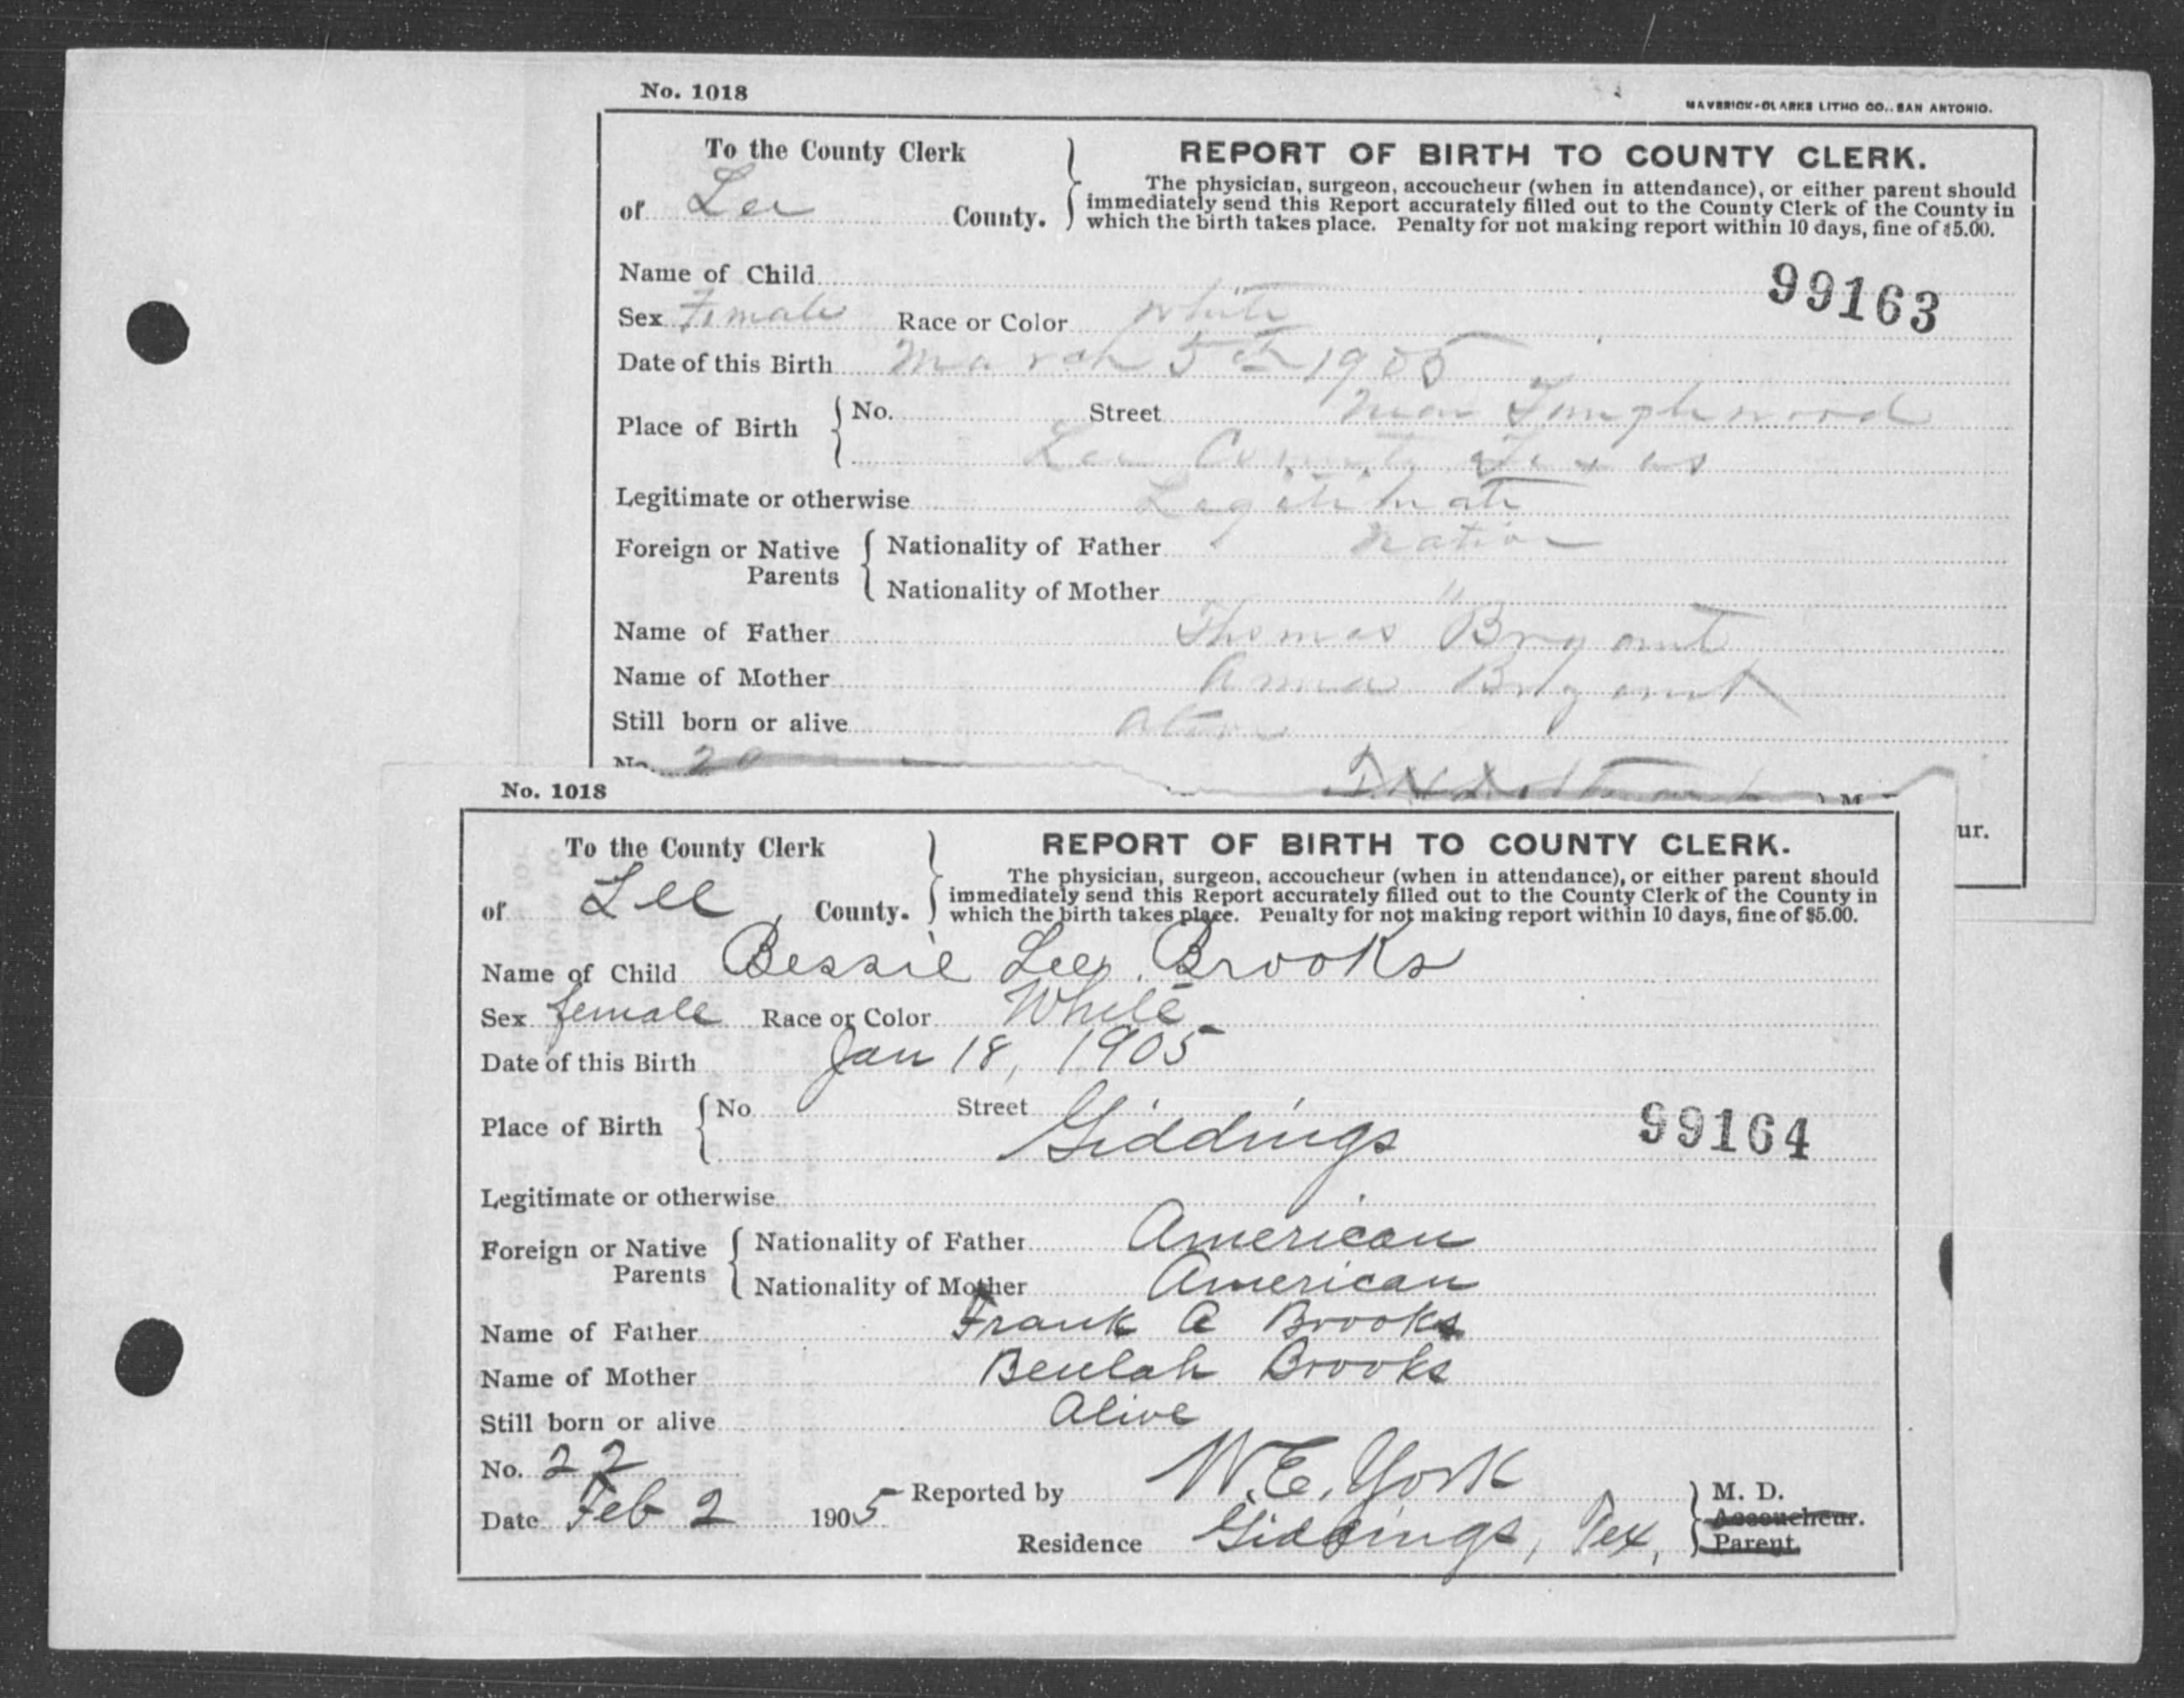 No. 1018
MAVERICK-CLARKE LITHO CO., SAN ANTONIO.
To the County Clerk
of Lee County.
REPORT OF BIRTH TO COUNTY CLERK.
The physician, surgeon, accoucheur (when in attendance), or either parent should
immediately send this Report accurately filled out to the County Clerk of the County in
which the birth takes place. Penalty for not making report within 10 days, fine of $5.00.
Name of Child
99163
Sex Female Race or Color White
Date of this Birth March 5th 1905
Place of Birth No. Street Near Tanglewood
Lee County Texas
Legitimate or otherwise Legitimate
Foreign or Native Parents
Nationality of Father Native
Nationality of Mother "
Name of Father Thomas Bryant
Name of Mother Anna Bryant
Still born or alive
No. 20
ur.
No. 1018
To the County Clerk
of Lee County.
REPORT OF BIRTH TO COUNTY CLERK.
The physician, surgeon, accoucheur (when in attendance), or either parent should
immediately send this Report accurately filled out to the County Clerk of the County in
which the birth takes place. Penalty for not making report within 10 days, fine of $5.00.
Name of Child Bessie Lee Brooks
Sex female Race or Color White
Date of this Birth Jan 18, 1905
Place of Birth No. Street Giddings
99164
Legitimate or otherwise
Foreign or Native Parents
Nationality of Father American
Nationality of Mother American
Name of Father Frank A Brooks
Name of Mother Beulah Brooks
Still born or alive Alive
No. 22
Date Feb 2 1905 Reported by W. E. York M. D.
Accoucheur.
Residence Giddings, Tex, Parent.